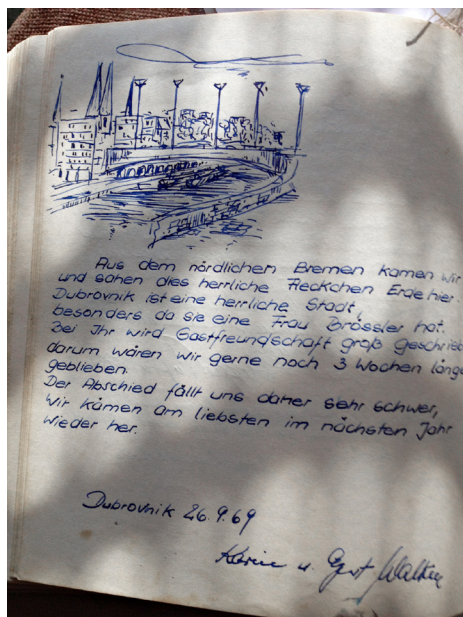 Aus dem nördlichen Bremen kamen wir
und sahen dies herrliche Fleckchen Erde hier.
Dubrovnik ist eine herrliche Stadt,
besonders da sie eine Frau Brössler hat.
Bei Ihr wird Gastfreundschaft groß geschrieb
darum wären wir gerne noch 3 Wochen länge
geblieben.
Der Abschied fällt uns daher sehr schwer,
Wir kämen am liebsten im nächsten Jahr
wieder her.
Dubrovnik 26.9.69
u.